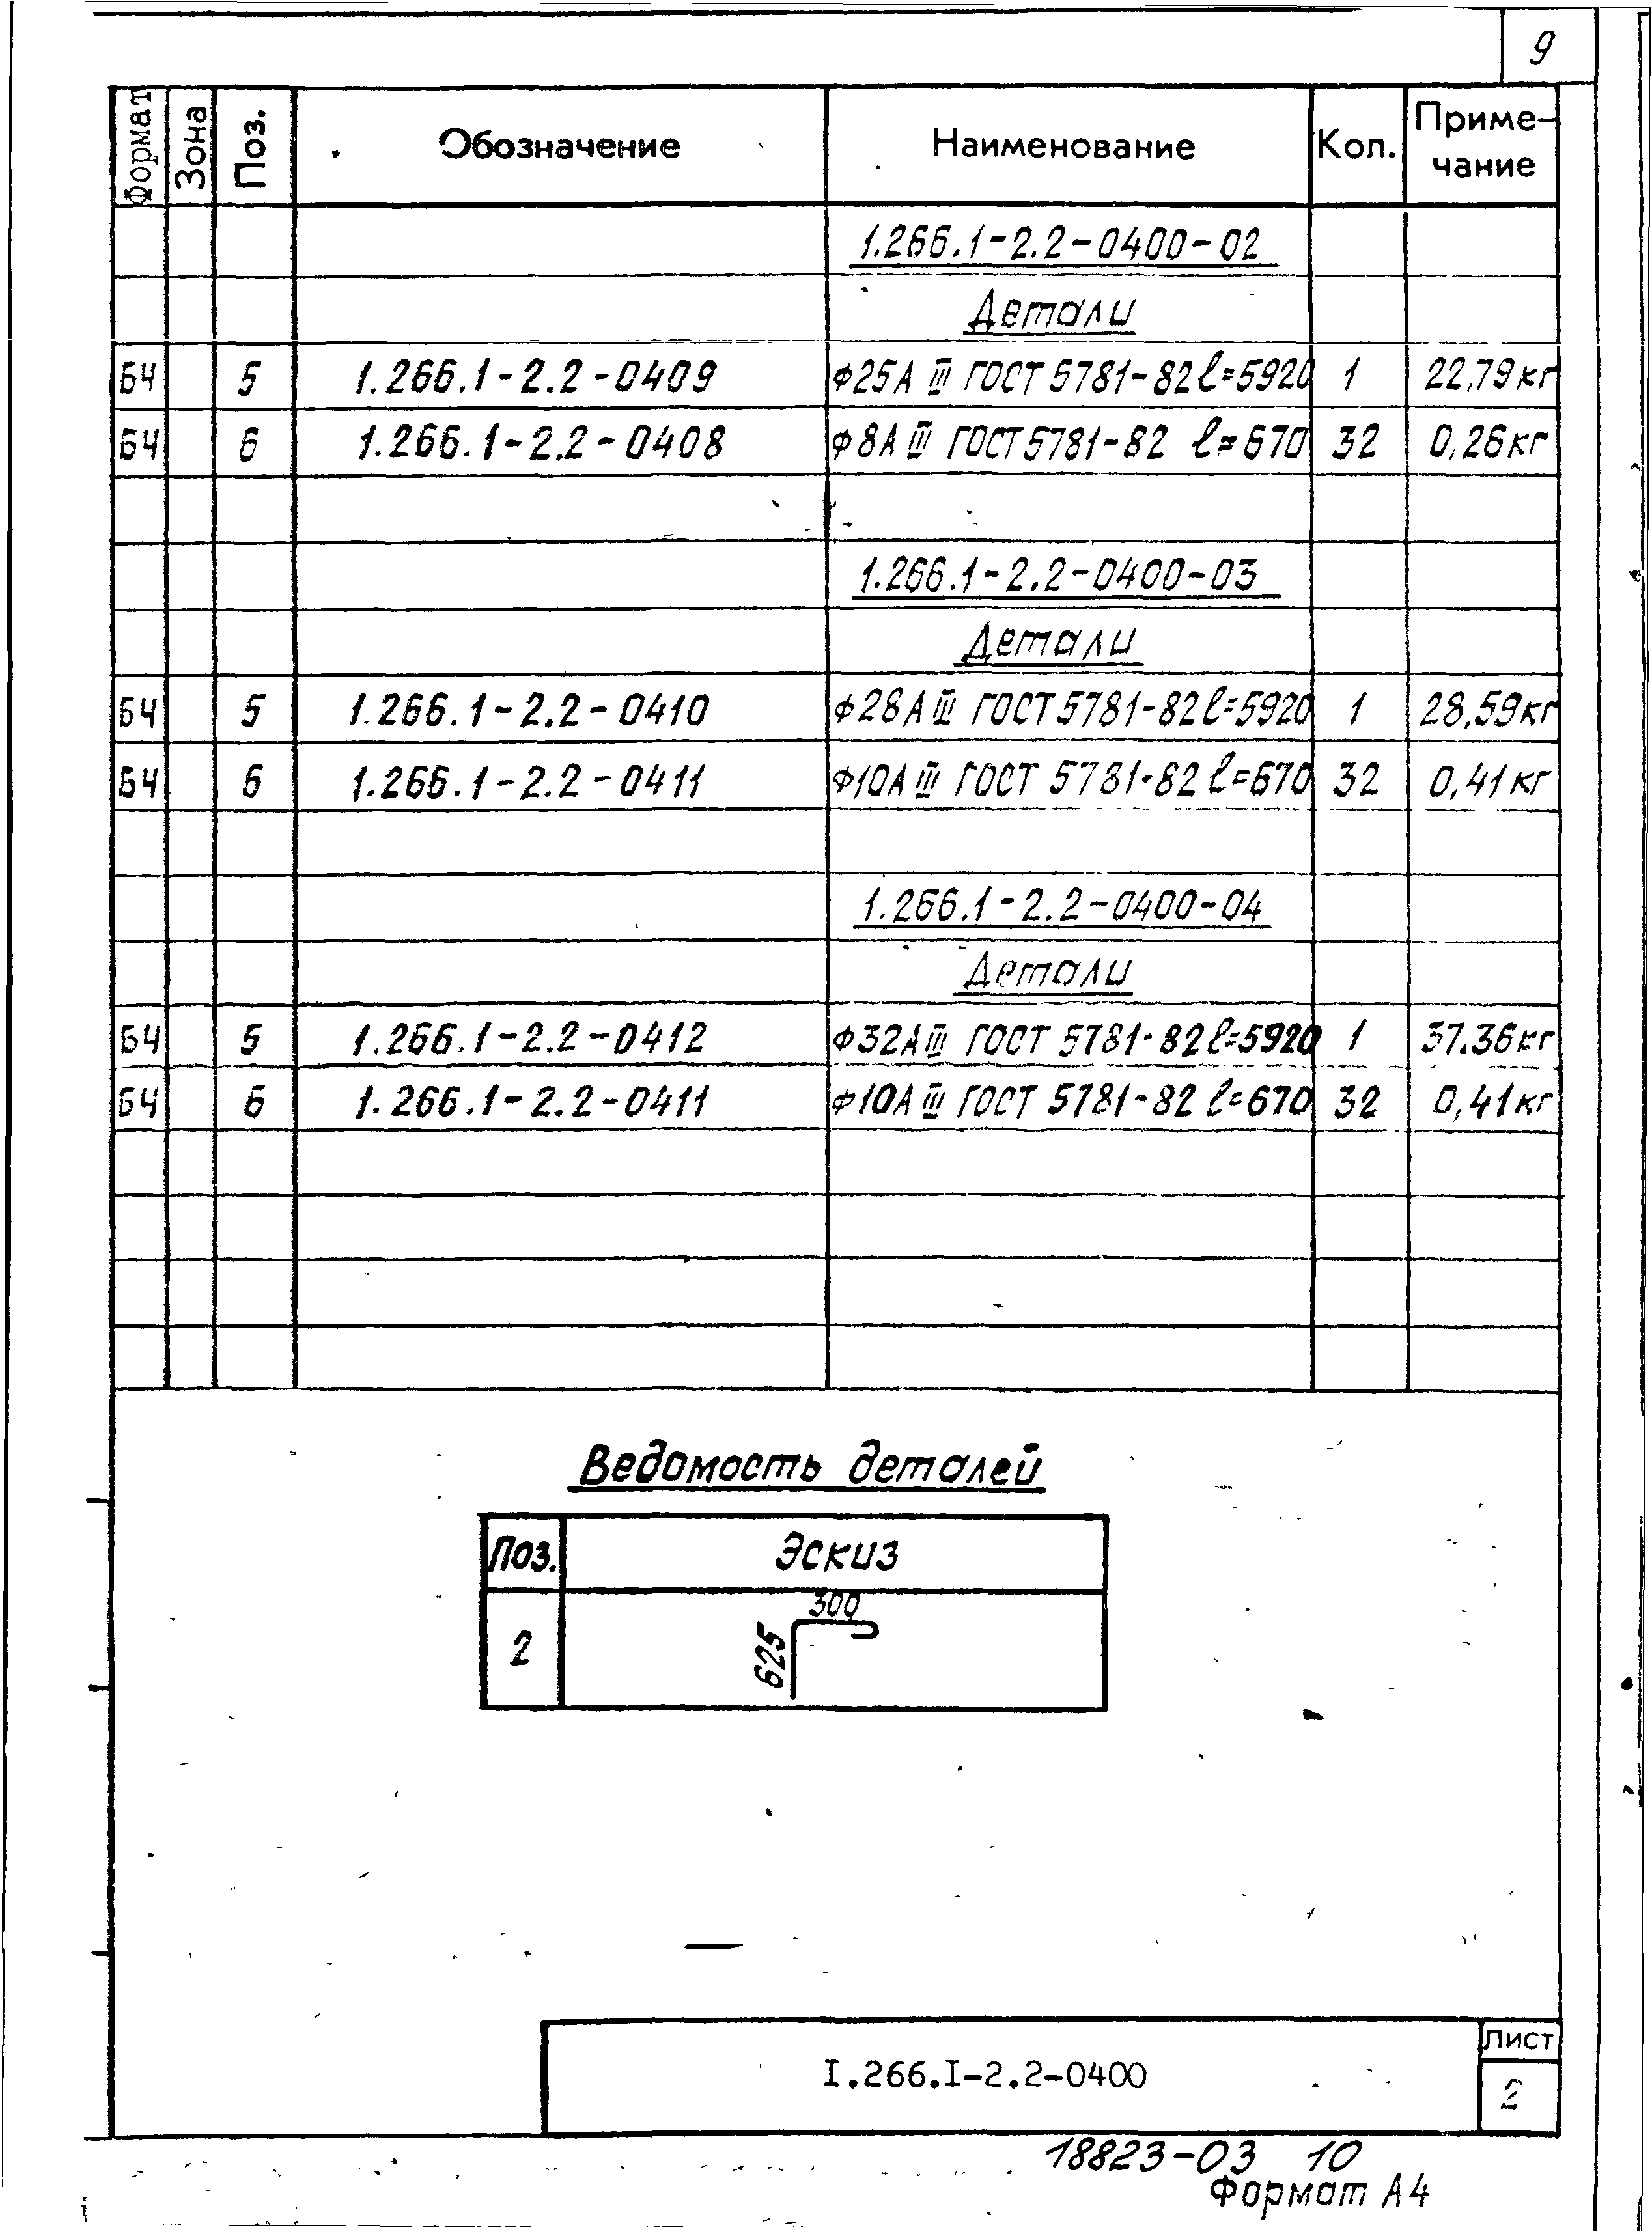 9
Формат Зона Поз. Обозначение Наименование Кол. Приме-
чание
1.266.1-2.2-0400-02
Детали
БЧ 5 1.266.1-2.2-0409 Ф25А III ГОСТ 5781-82 ℓ=5920 1 22,79 кг
БЧ 6 1.266.1-2.2-0408 Ф8А III ГОСТ 5781-82 ℓ=670 32 0,26 кг
1.266.1-2.2-0400-03
Детали
БЧ 5 1.266.1-2.2-0410 Ф28А III ГОСТ 5781-82 ℓ=5920 1 28,59 кг
БЧ 6 1.266.1-2.2-0411 Ф10А III ГОСТ 5781-82 ℓ=670 32 0,41 кг
1.266.1-2.2-0400-04
Детали
БЧ 5 1.266.1-2.2-0412 Ф32А III ГОСТ 5781-82 ℓ=5920 1 37.36 кг
БЧ 6 1.266.1-2.2-0411 Ф10А III ГОСТ 5781-82 ℓ=670 32 0,41 кг
Ведомость деталей
Поз. Эскиз
300
2 625
Лист
I.266.I-2.2-0400
2
18823-03 10
Формат А4